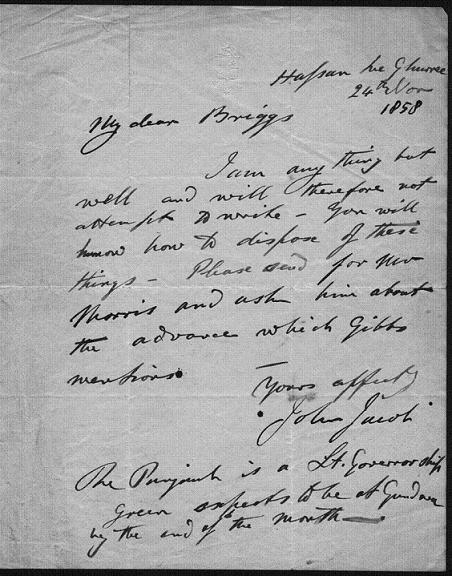 Hassan ke Ghurree
24th Nov
1858
My dear Briggs
I am any thing but
well and will therefore not
attempt to write – You will
know how to dispose of these
things – Please send for Mr
Morris and ask him about
the advance which Gibbs
mentions
Yours affectly
John Jacob
The Punjaub is a Lt. Governorship
Green expects to be at
by the end of the month